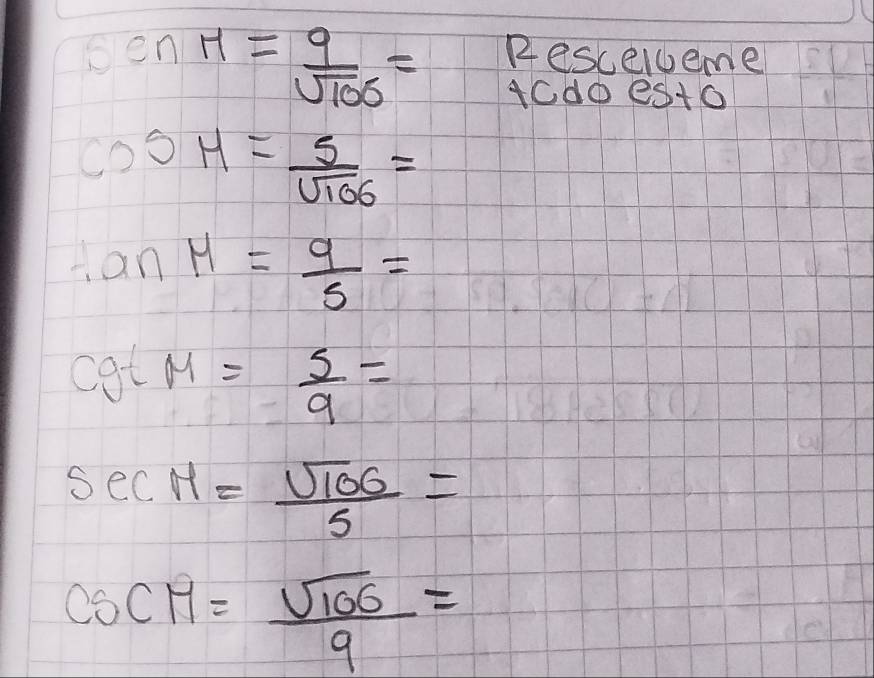 sen M = 9/√106 = Resuelveme
todo esto
cos M = 5/√106 =
tan M = 9/5 =
cgt M = 5/9 =
sec M = √106/5 =
csc M = √106/9 =